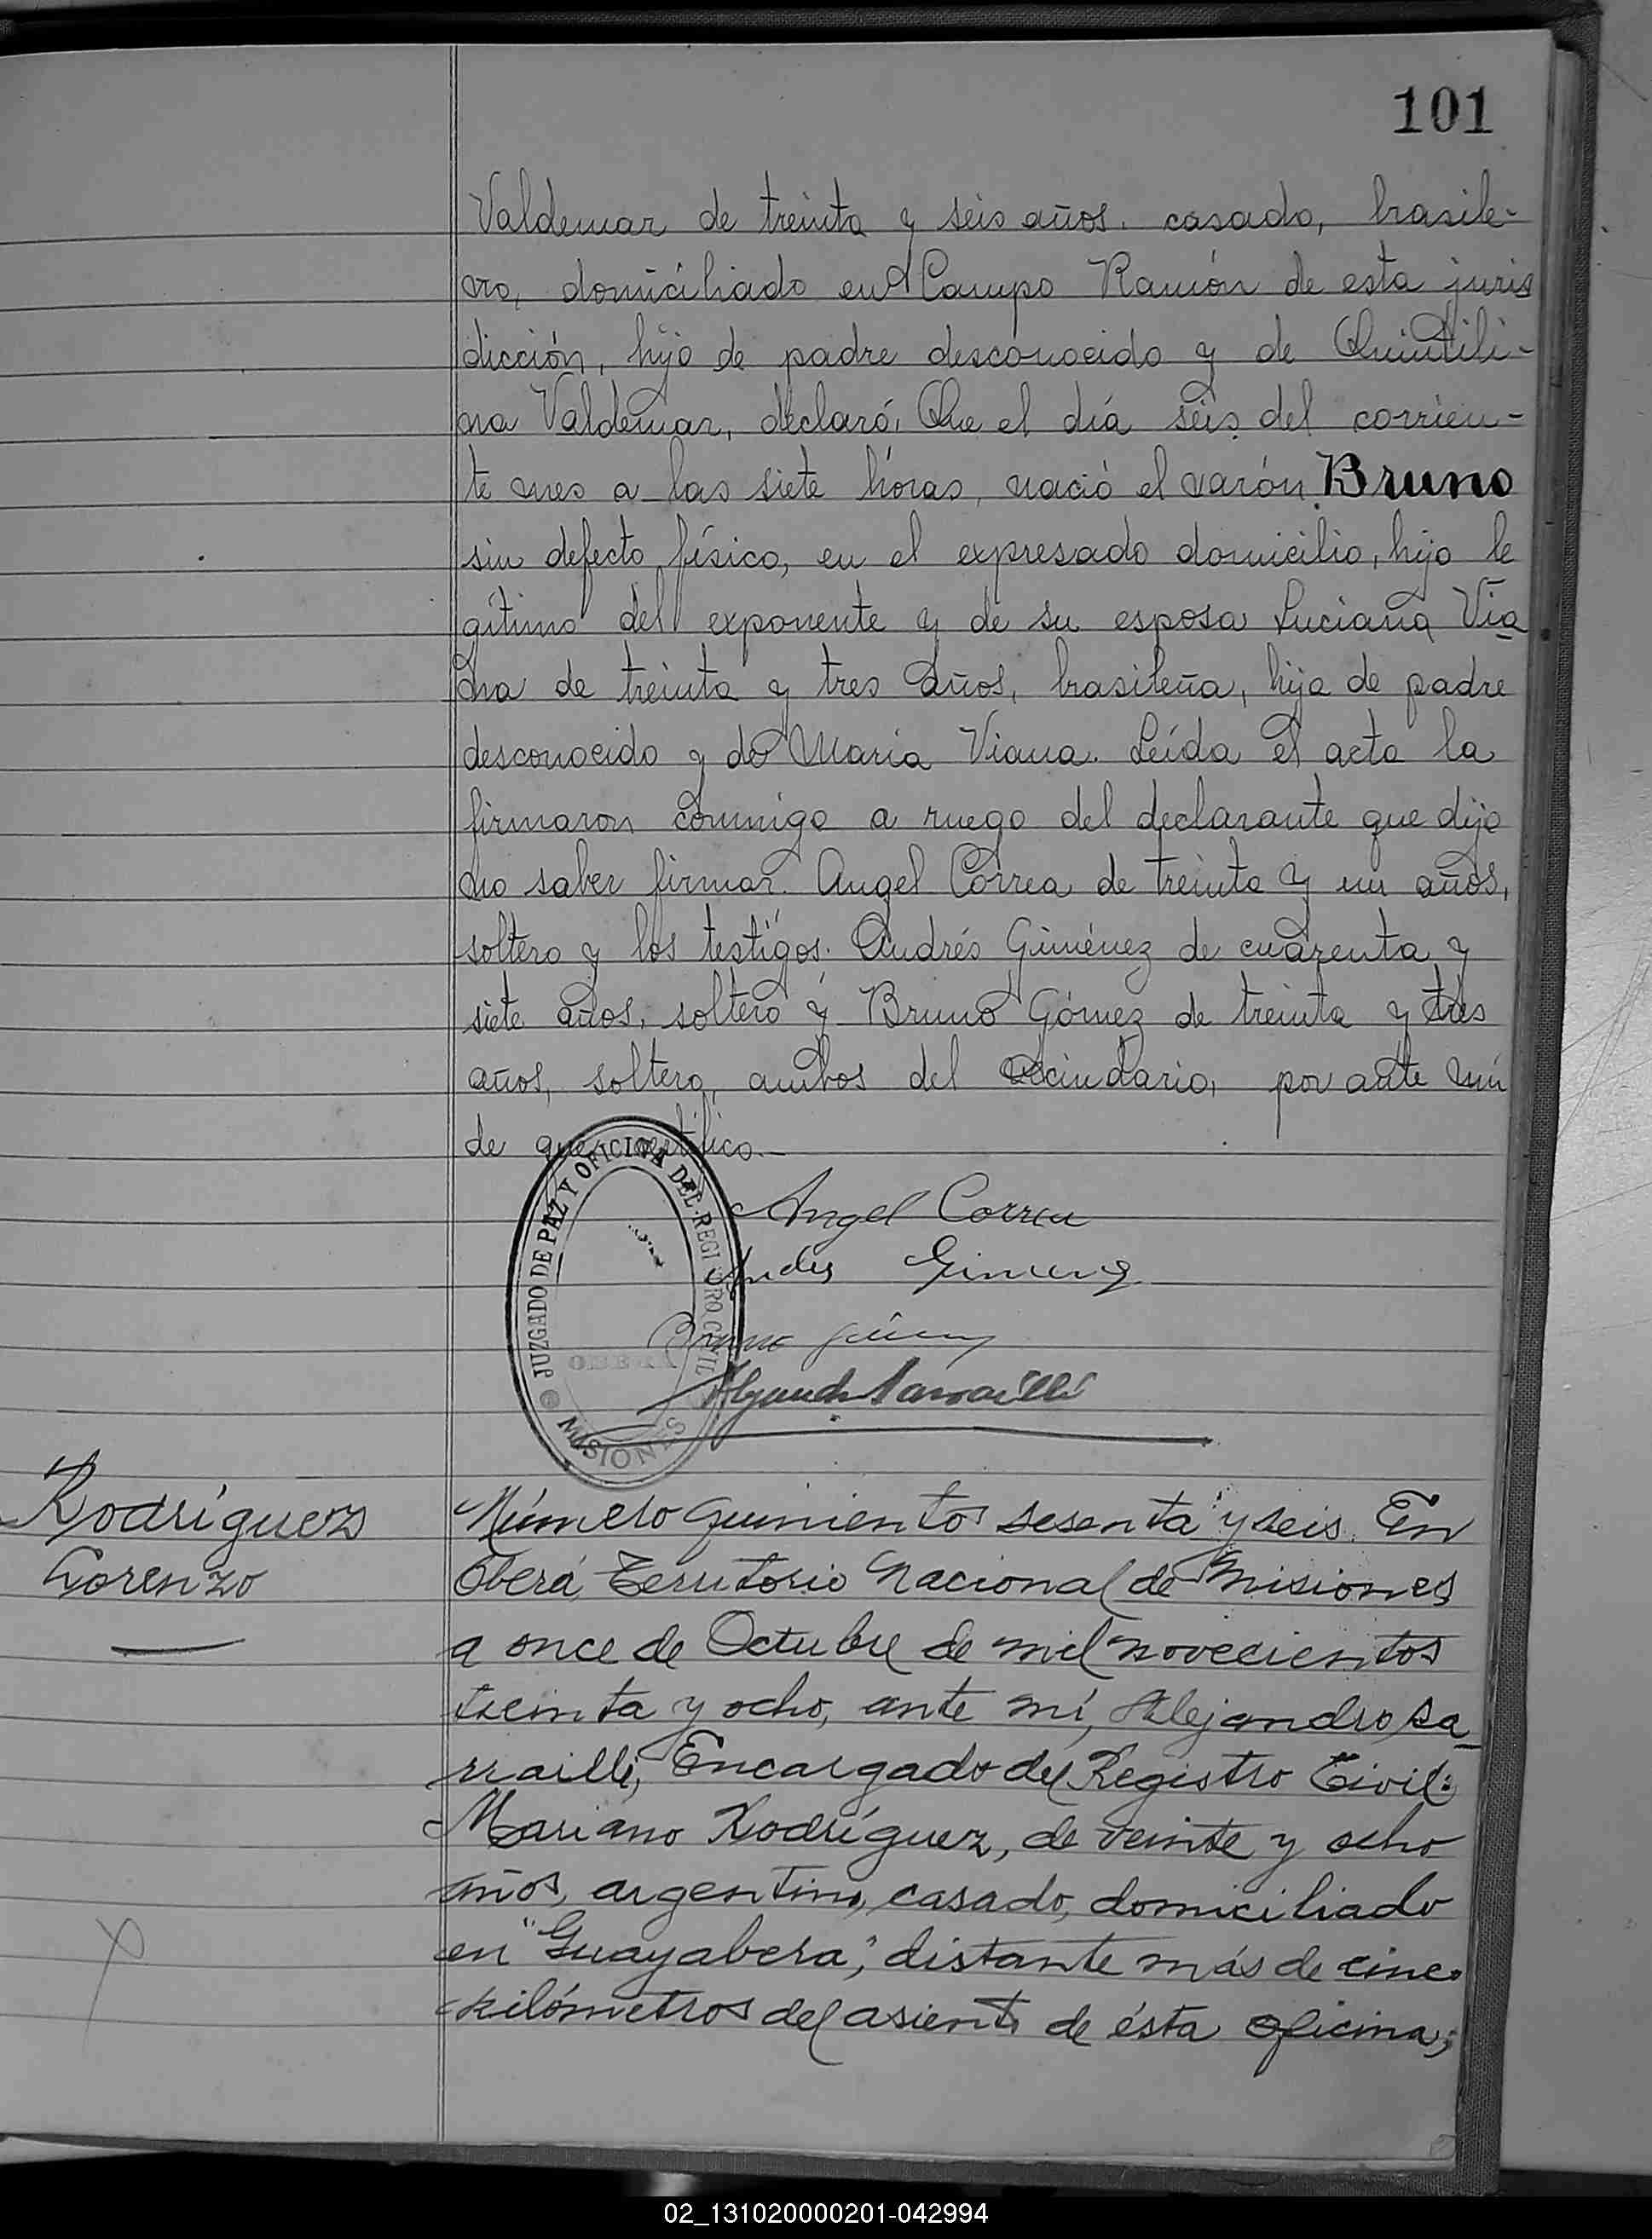 101
Valdemar de treinta y seis años. casado, brasile-
ro, domiciliado en Campo Ramón de esta juris
dicción, hijo de padre desconocido y de Quintili-
na Valdemar, declaró: Que el día seis del corrien-
te mes a las siete horas, nació el varón Bruno
sin defecto físico, en el expresado domicilio, hijo le
gítimo del exponente y de su esposa Luciana Via
na de treinta y tres años, brasileña, hija de padre
desconocido y de María Viana. Leída el acta la
firmaron conmigo a ruego del declarante que dijo
no saber firmar. Angel Correa de treinta y un años,
soltero y los testigos: Andrés Giménez de cuarenta y
siete años, soltero y Bruno Gómez de treinta y tres
años, soltero, ambos del vecindario, por ante mí
de que certifico.-
Angel Correa
Andres Gimenez
Bruno
JUZGADO DE PAZ Y OFICINA DEL REGISTRO CIVIL
OBERA
MISIONES
Rodríguez
Lorenzo
Número quinientos sesenta y seis. En
Oberá, Territorio Nacional de Misiones
a once de Octubre de mil novecientos
treinta y ocho, ante mí, Alejandro Sa_
rraillé, Encargado del Registro Civil:
Mariano Rodríguez, de veinte y ocho
años, argentino, casado, domiciliado
en "Guayabera", distante más de cinco
kilómetros del asiento de ésta oficina;
02_131020000201-042994